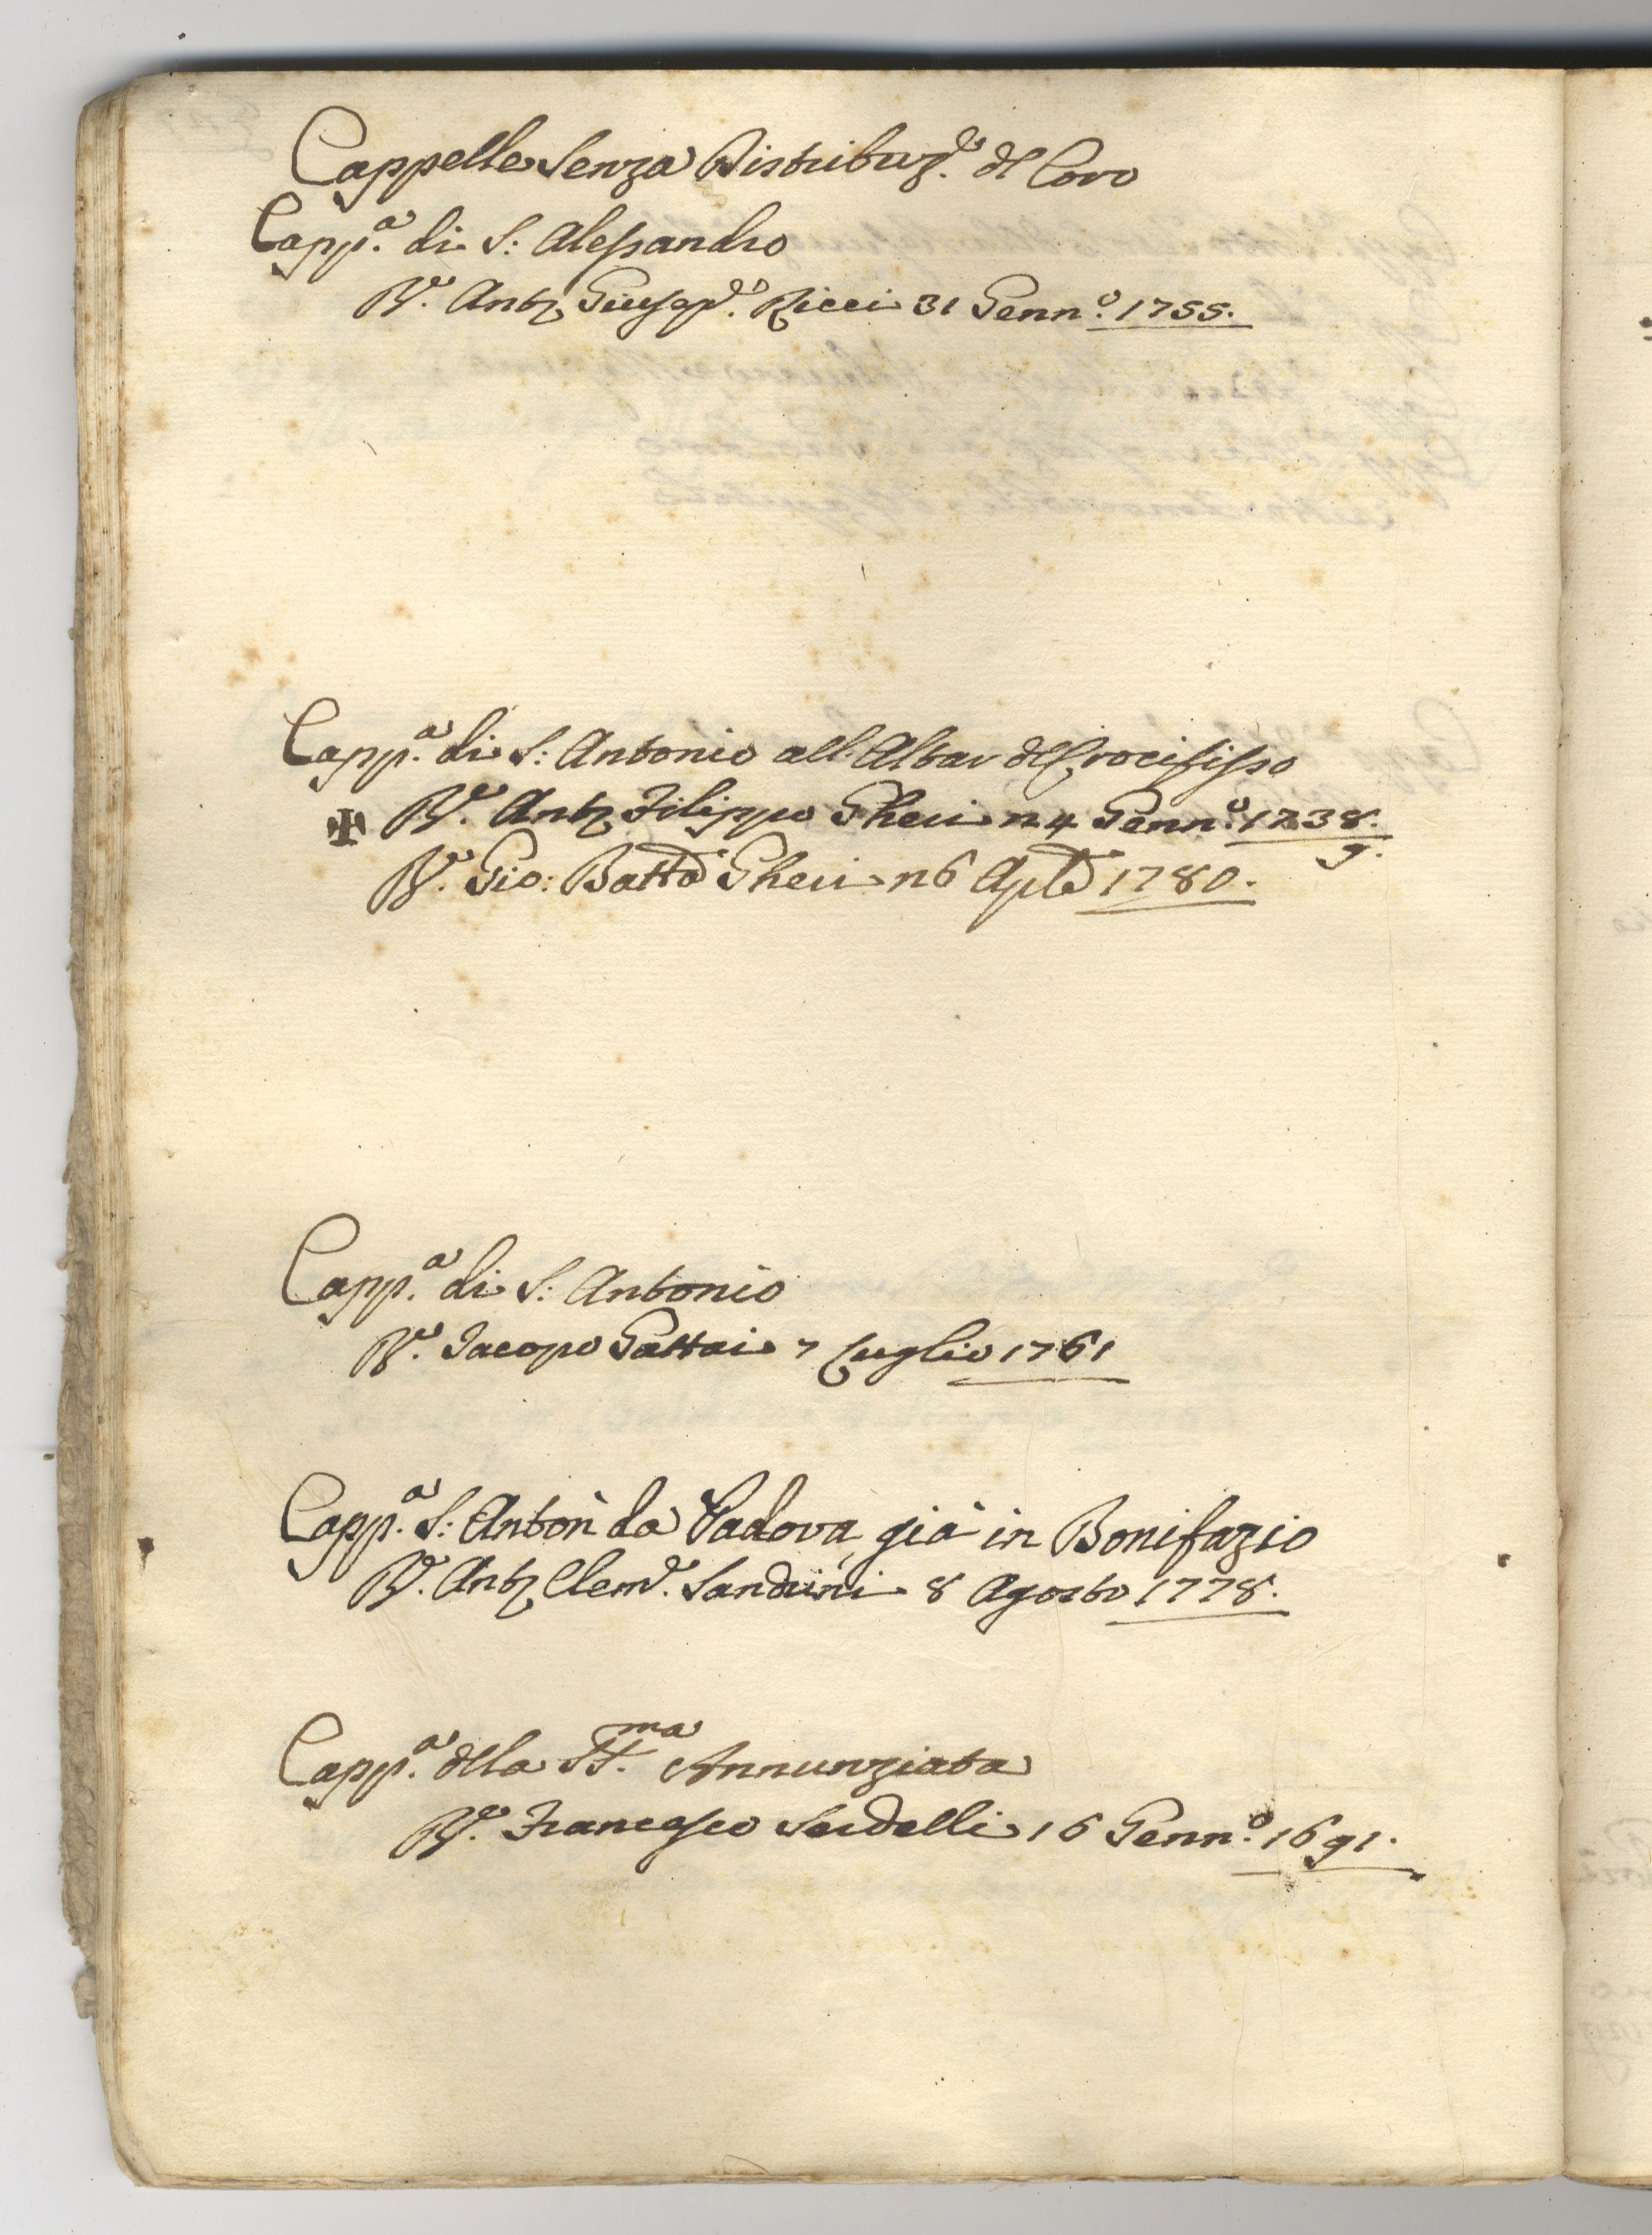 Cappelle Senza Distribuz.e del Coro
Capp.a di S: Alessandro
R.e Ant.o Giusep.e Ricci 31 Genn.o 1755.
Capp.a di S: Antonio all'Altar del Crocifisso
✠ R.e Ant.o Filippo Gheri 24 Genn.o 1738.
9.
R.e Gio: Batta Gheri 26 Aple 1780.
Capp.a di S: Antonio
R.e Jacopo Gattai 7 Luglio 1761
Capp.a S: Anton da Padova, già in Bonifazio
R.e Ant.o Clem.e Sandrini 8 Agosto 1778.
Capp.a della SS.ma Annunziata
R.e Francesco Serdelli 16 Genn.o 1691.